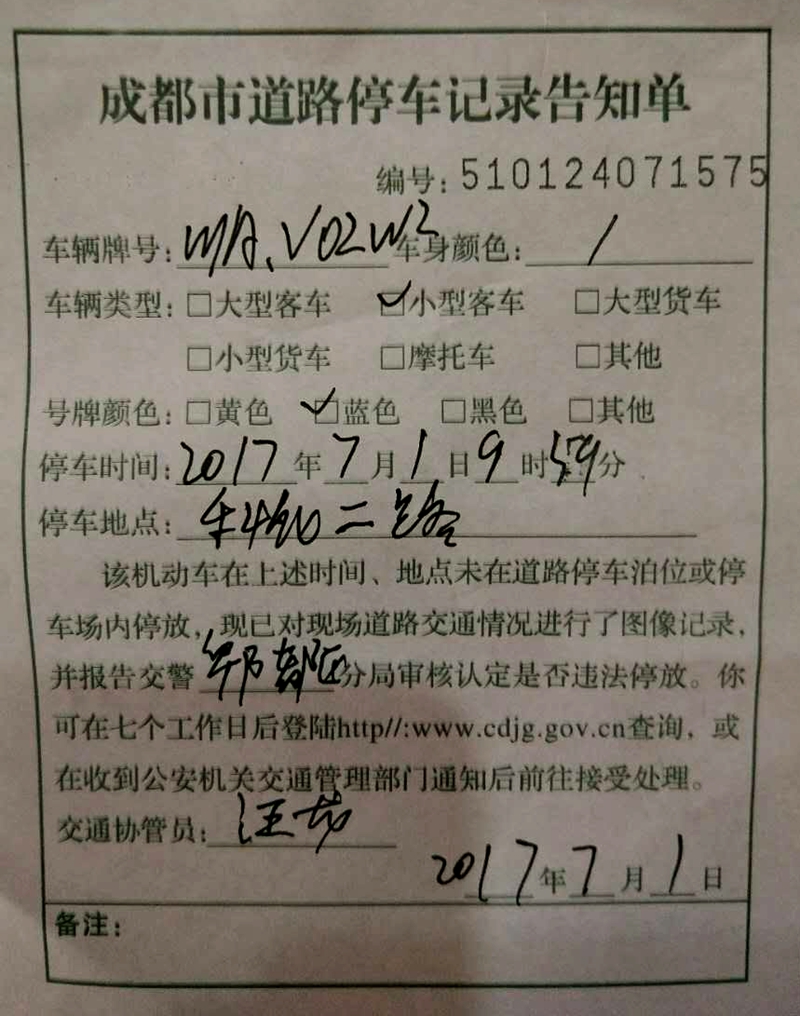 成都市道路停车记录告知单
编号:510124071575
车辆牌号: A.V02W2 车身颜色: /
车辆类型: □大型客车 ☑小型客车 □大型货车
□小型货车 □摩托车 □其他
号牌颜色: □黄色 ☑蓝色 □黑色 □其他
停车时间: 2017年7月1日9时59分
停车地点: 二路
该机动车在上述时间、地点未在道路停车泊位或停
车场内停放,现已对现场道路交通情况进行了图像记录,
并报告交警 郫都区分局审核认定是否违法停放。你
可在七个工作日后登陆http//:www.cdjg.gov.cn查询,或
在收到公安机关交通管理部门通知后前往接受处理。
交通协管员: 汪
2017年7月1日
备注: